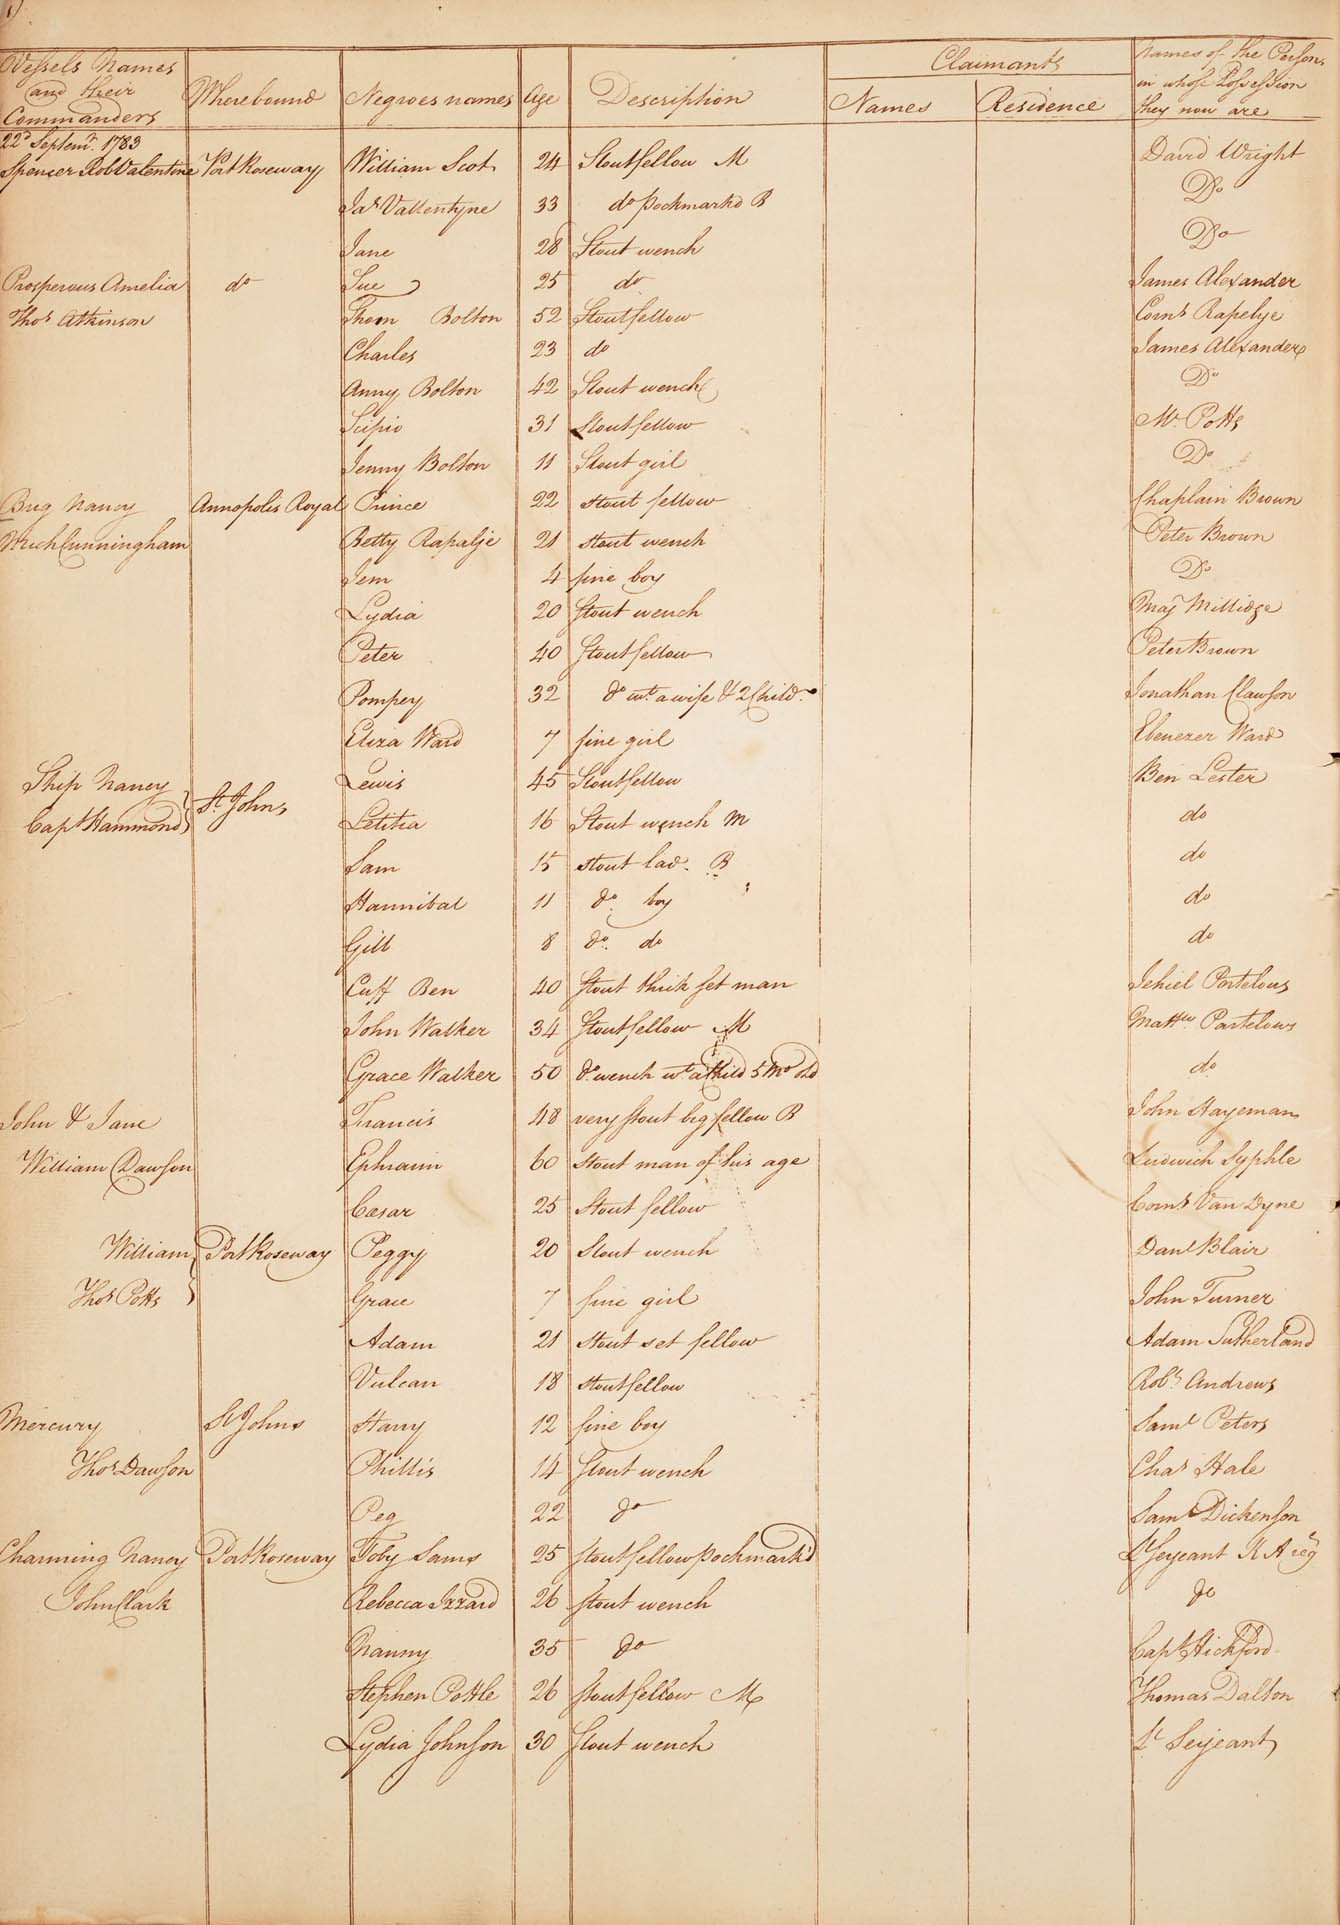 Vessels Names and their Commanders Wherebound Negroes names Age Description Claimants Names Residence Names of the Persons in whose Possession they now are
22d Septemr. 1783
Spencer Rob Valentine Port Roseway William Scot 24 Stout fellow M David Wright
Jas Vallentyne 33 do pockmarkd B Do
Jane 28 Stout wench Do
Prosperous Amelia do Sue 25 do James Alexander
Thos Atkinson Thom Bolton 52 Stout fellow Corns Rapelye
Charles 23 do James Alexander
Anny Bolton 42 Stout wench Do
Scipio 31 Stout fellow Mr. Potts
Jenny Bolton 11 Stout girl Do
Brig Nancy Annopolis Royal Prince 22 stout fellow Chaplain Brown
Mich Cunningham Betty Rapalje 21 stout wench Peter Brown
Jem 4 fine boy Do
Lydia 20 Stout wench Majr Millidge
Peter 40 Stout fellow Peter Brown
Pompey 32 do wt. a wife & 2 Child. Jonathan Clawson
Eliza Ward 7 fine girl Ebenezer Ward
Ship Nancy St. Johns Lewis 45 Stout fellow Ben Lester
Capt Hammond Letitia 16 Stout wench M do
Sam 15 stout lad. B do
Hannibal 11 do. boy do
Gill 8 do. do do
Cuff Ben 40 Stout thick set man Jehiel Partelous
John Walker 34 Stout fellow M Matthw Partelows
Grace Walker 50 do wench wt a Child 5 Mo old do
John & Jane Francis 48 very stout big fellow B John Hayeman
William Dawson Ephraim 60 stout man of his age Ludwich Syphle
Cæsar 25 Stout fellow Corns Van Dyne
William Port Roseway Peggy 20 Stout wench Danl Blair
Thos Potts Grace 7 fine girl John Turner
Adam 21 stout set fellow Adam Sutherland
Vulcan 18 stout fellow Robt Andrews
Mercury St Johns Harry 12 fine boy Saml Peters
Thos Dawson Phillis 14 Stout wench Chas Hale
Peg 22 do Saml Dickenson
Charming Nancy Port Roseway Toby Sams 25 stout fellow pockmark'd Lt Sejeant R A reg
John Clark Rebecca Izzard 26 stout wench do
Nanny 35 do Capt Hickford
Stephen Pottle 26 stout fellow M Thomas Dalton
Lydia Johnson 30 Stout wench Lt Sejeant